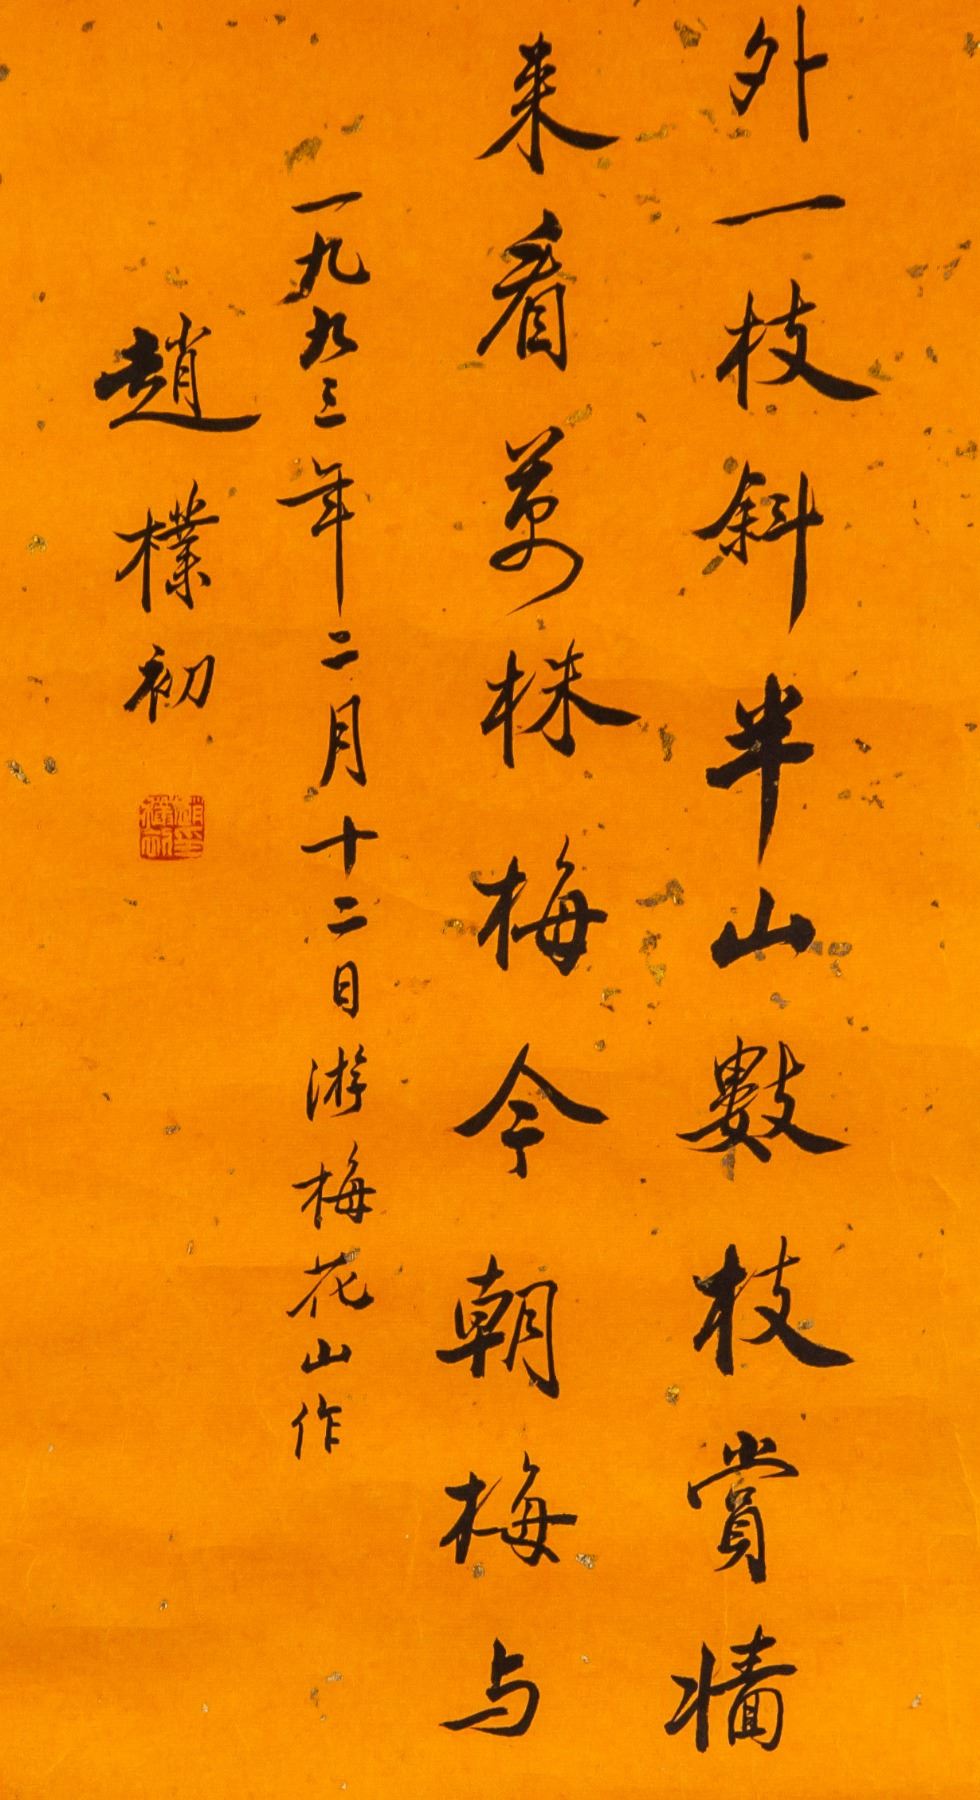 外一枝斜半山數枝賞墻
来看萬株梅今朝梅与
一九九三年二月十二日游梅花山作
趙樸初
趙樸初印